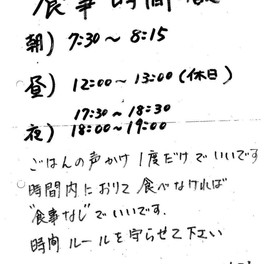 食事時間
朝) 7:30〜8:15
昼) 12:00〜13:00(休日)
17:30〜18:30
夜) 18:00〜19:00
ごはんの声かけ1度だけでいいです
時間内におりて食べなければ
"食事なし"でいいです.
時間ルールを守らせて下さい